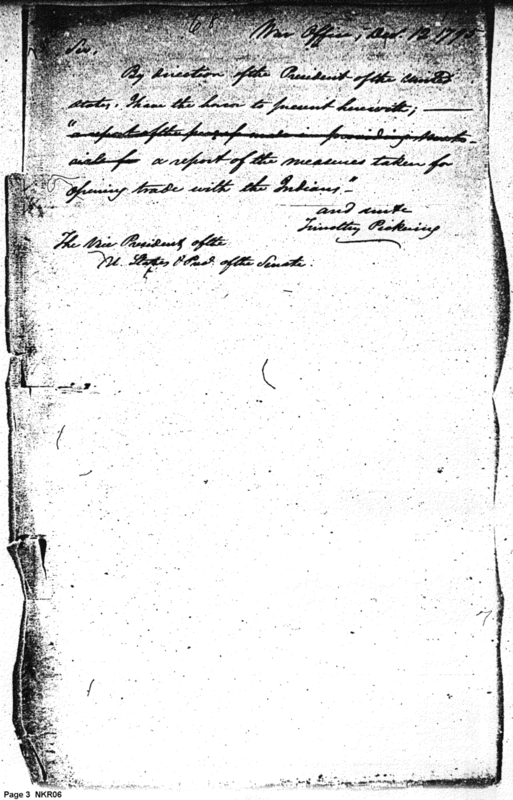 68
War Office, Dec. 12. 1795
Sir,
By direction of the President of the United
States, I have the honor to present herewith; —
"a report of the progress made in providing
a report of the measures taken for
opening trade with the Indians."
Timothy Pickering
The Vice President of the
U. States & Pres. of the Senate.
Page 3 NKR06